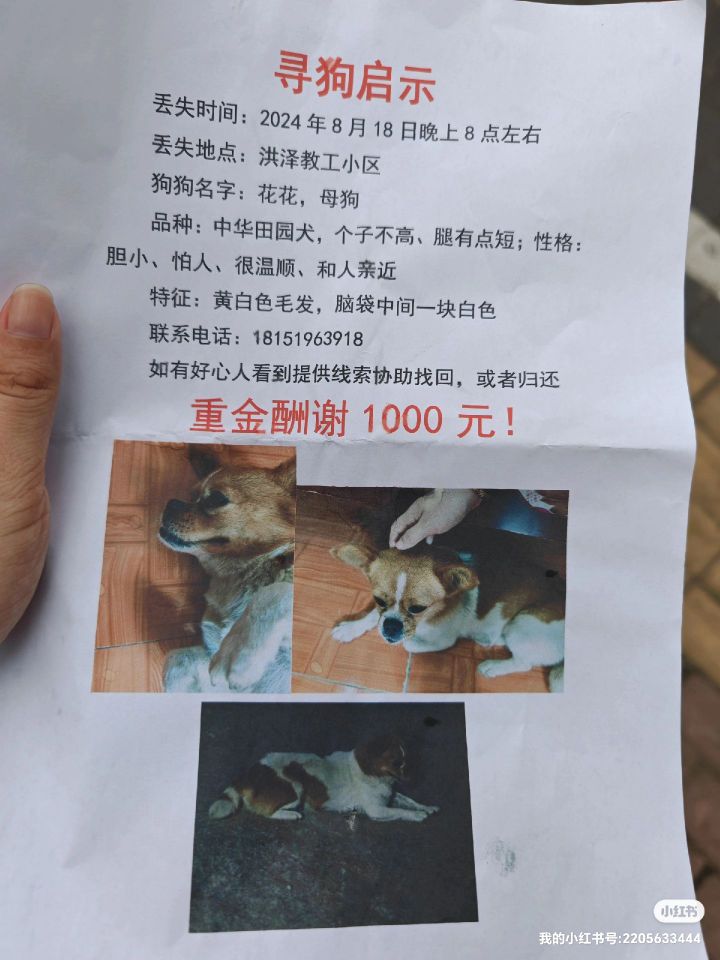 寻狗启示
丢失时间：2024年8月18日晚上8点左右
丢失地点：洪泽教工小区
狗狗名字：花花，母狗
品种：中华田园犬，个子不高、腿有点短；性格：
胆小、怕人、很温顺、和人亲近
特征：黄白色毛发，脑袋中间一块白色
联系电话：18151963918
如有好心人看到提供线索协助找回，或者归还
重金酬谢1000元！
小红书
我的小红书号:2205633444